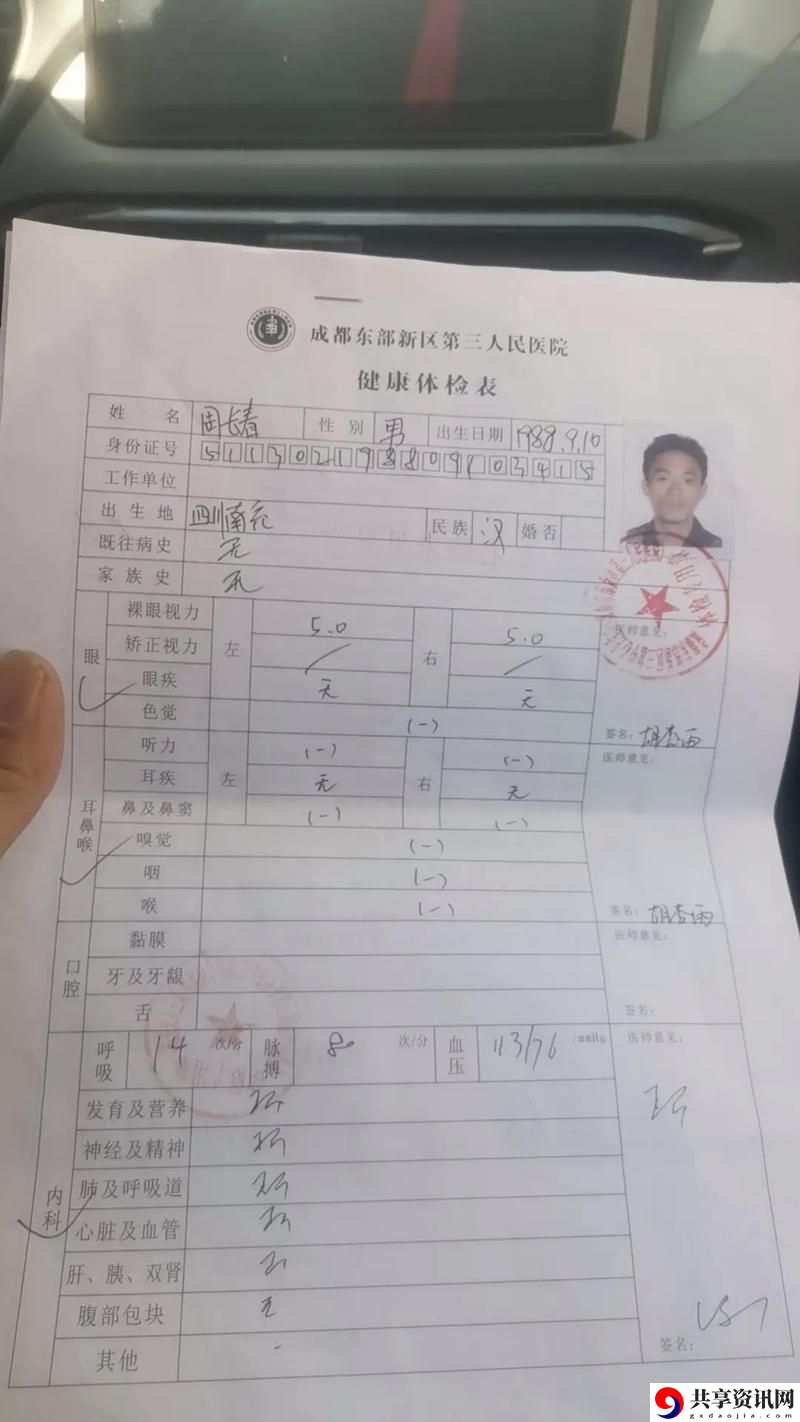 成都东部新区第三人民医院
健康体检表
姓名 周长春 性别 男 出生日期 1988.9.10
身份证号 511302198809103415
工作单位
出生地 四川南充 民族 汉 婚否
既往病史 无
家族史 无
眼 裸眼视力 左 5.0 右 5.0 医师意见:
矫正视力 / /
眼疾 无 无
色觉 (-) 签名:
耳鼻喉 听力 左 (-) 右 (-) 医师意见:
耳疾 无 无
鼻及鼻窦 (-) (-)
嗅觉 (-)
咽 (-)
喉 (-) 签名:
口腔 黏膜 医师意见:
牙及牙龈
舌 签名:
内科 呼吸 14 次/分 脉搏 80 次/分 血压 113/76 /mmHg 医师意见:
发育及营养
神经及精神
肺及呼吸道
心脏及血管
肝、胰、双肾
腹部包块 无
其他 -
签名:
共享资讯网
gxdaojia.com